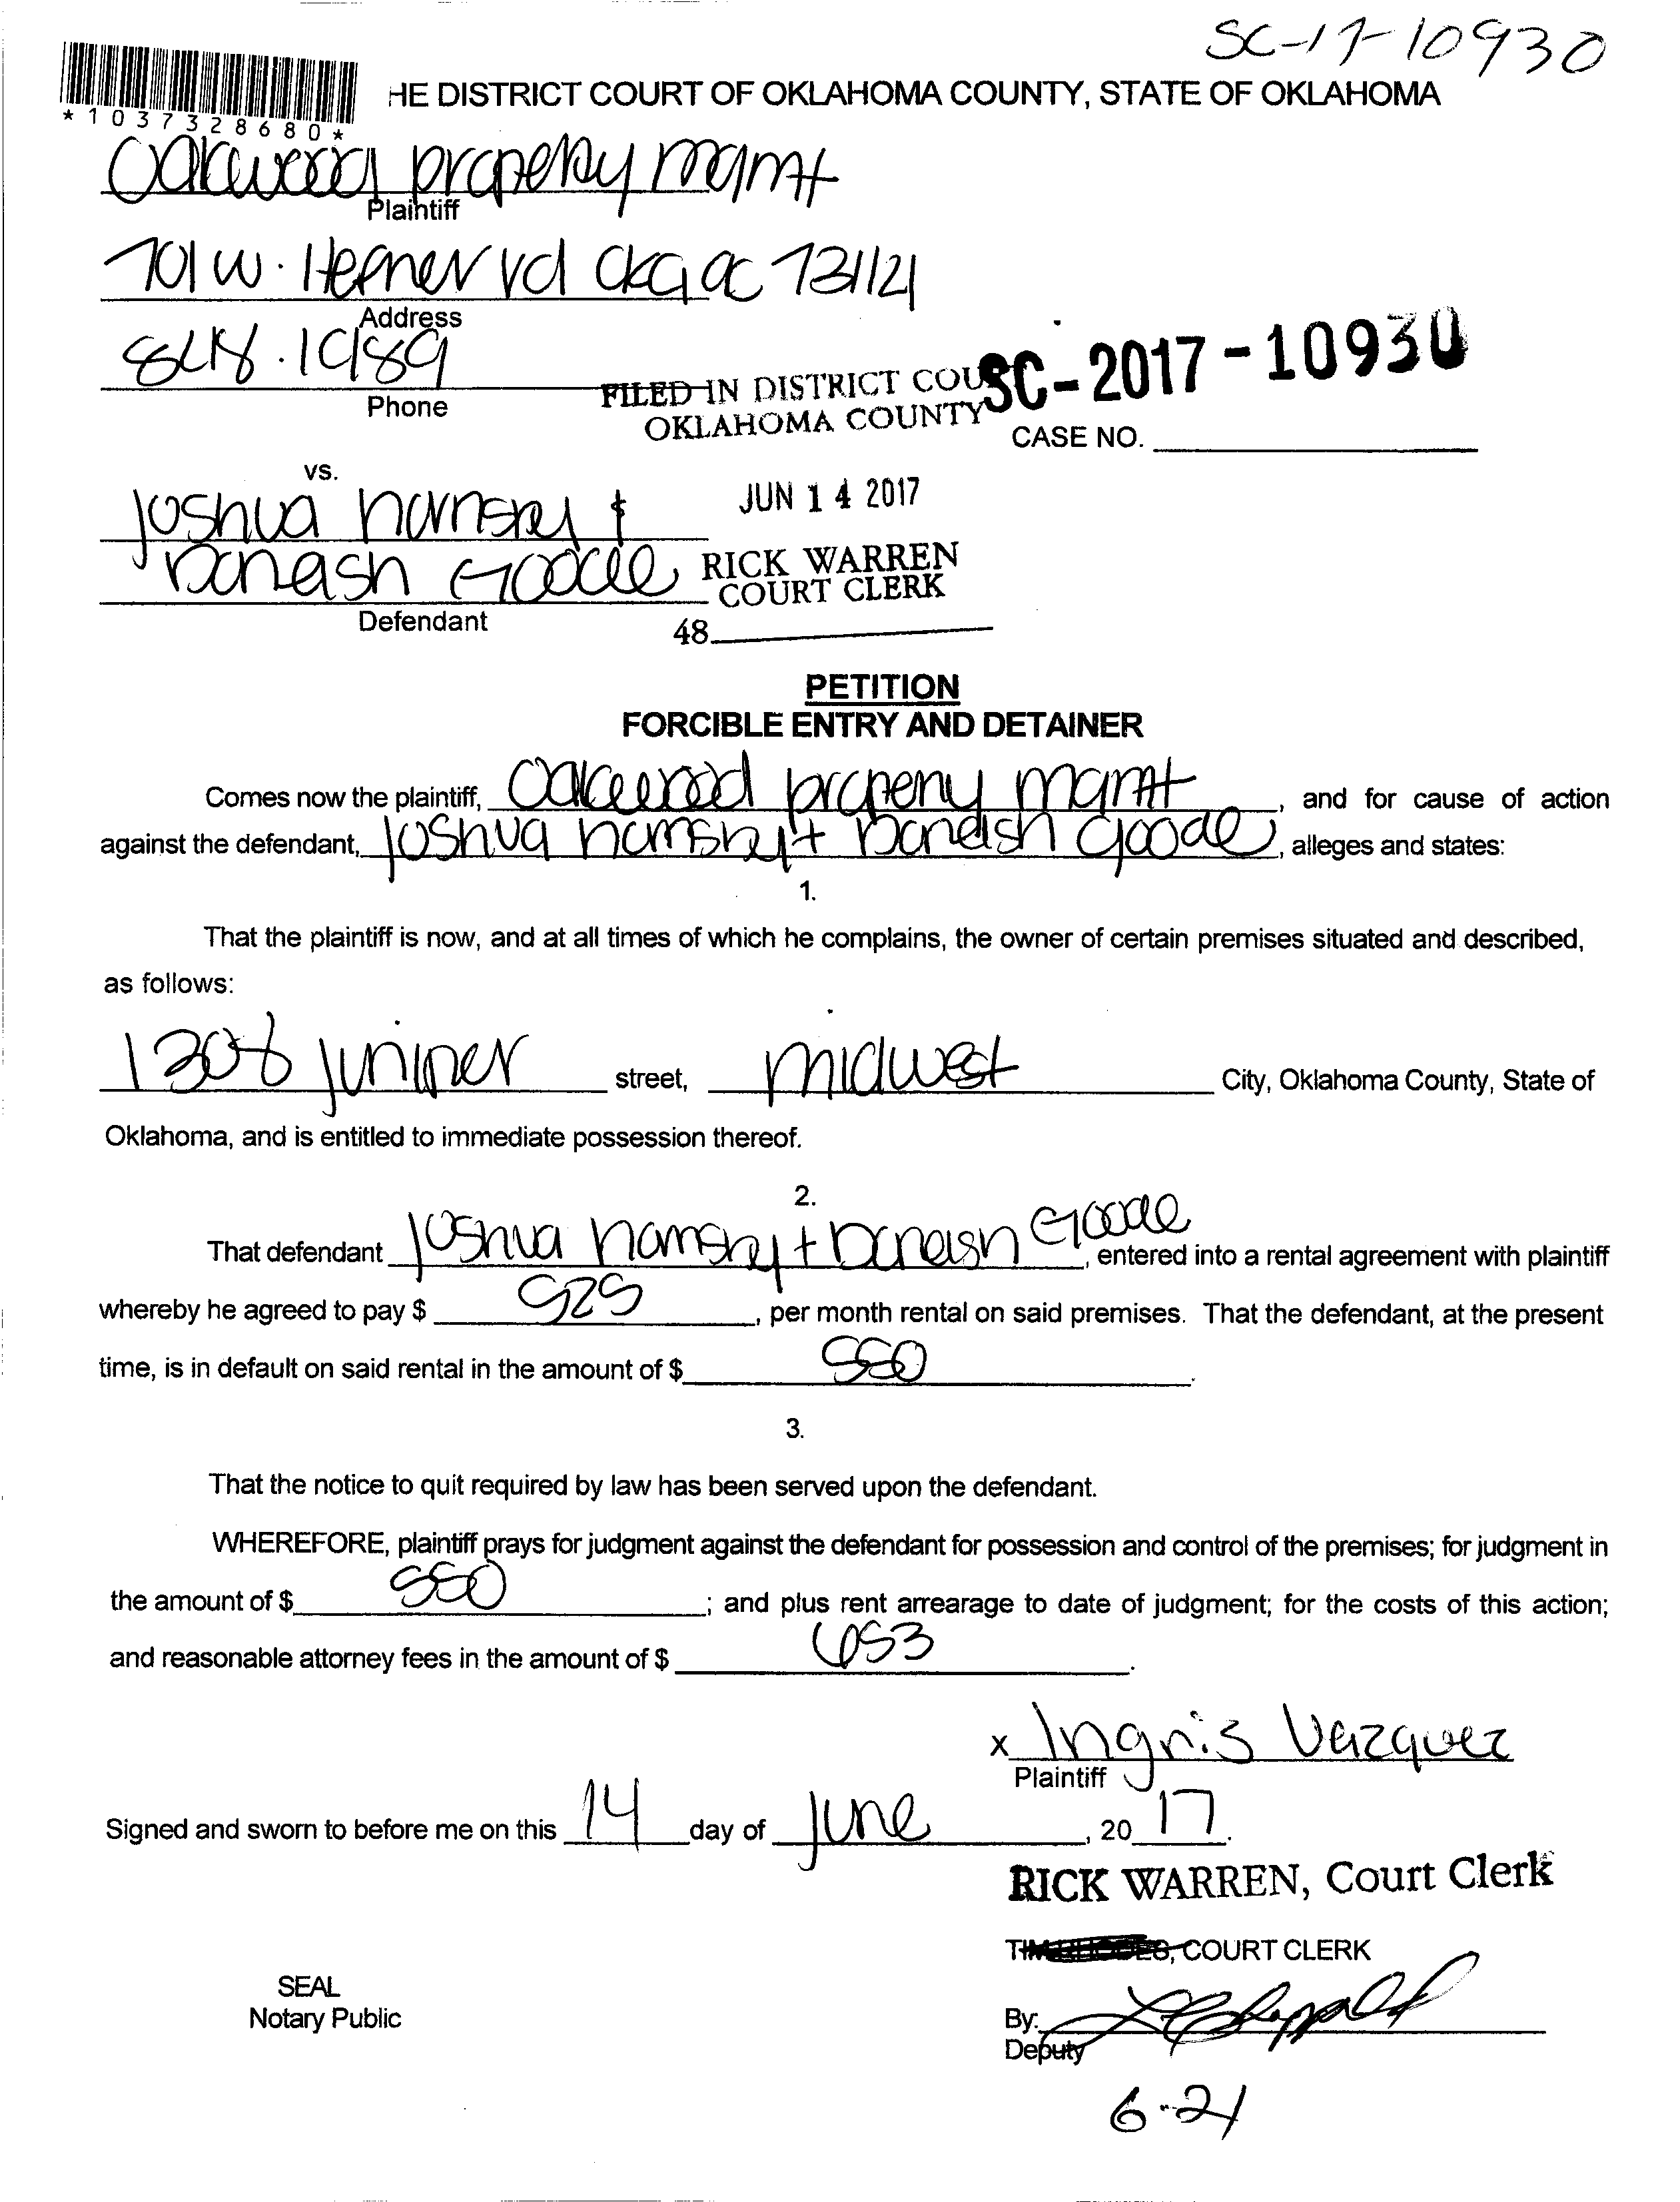 SC-17-10930
HE DISTRICT COURT OF OKLAHOMA COUNTY, STATE OF OKLAHOMA
*1037328680*
Oakwood property mgmt
Plaintiff
701 W. Hefner rd okc ok 73112
Address
Phone
FILED IN DISTRICT COU
OKLAHOMA COUNTY
SC-2017-10930
CASE NO.
vs.
Joshua &
JUN 14 2017
Goode
RICK WARREN
COURT CLERK
Defendant
48
PETITION
FORCIBLE ENTRY AND DETAINER
Comes now the plaintiff, Oakwood property mgmt, and for cause of action
against the defendant, Joshua + Goode, alleges and states:
1.
That the plaintiff is now, and at all times of which he complains, the owner of certain premises situated and described,
as follows:
1308 juniper street, midwest City, Oklahoma County, State of
Oklahoma, and is entitled to immediate possession thereof.
2.
That defendant Joshua + Goode, entered into a rental agreement with plaintiff
whereby he agreed to pay $ 525, per month rental on said premises. That the defendant, at the present
time, is in default on said rental in the amount of $ 550.
3.
That the notice to quit required by law has been served upon the defendant.
WHEREFORE, plaintiff prays for judgment against the defendant for possession and control of the premises; for judgment in
the amount of $ 550; and plus rent arrearage to date of judgment; for the costs of this action;
and reasonable attorney fees in the amount of $ 653.
x Ingris Vazquez
Plaintiff
Signed and sworn to before me on this 14 day of June, 20 17.
RICK WARREN, Court Clerk
COURT CLERK
SEAL
Notary Public
By:
Deputy
6-21